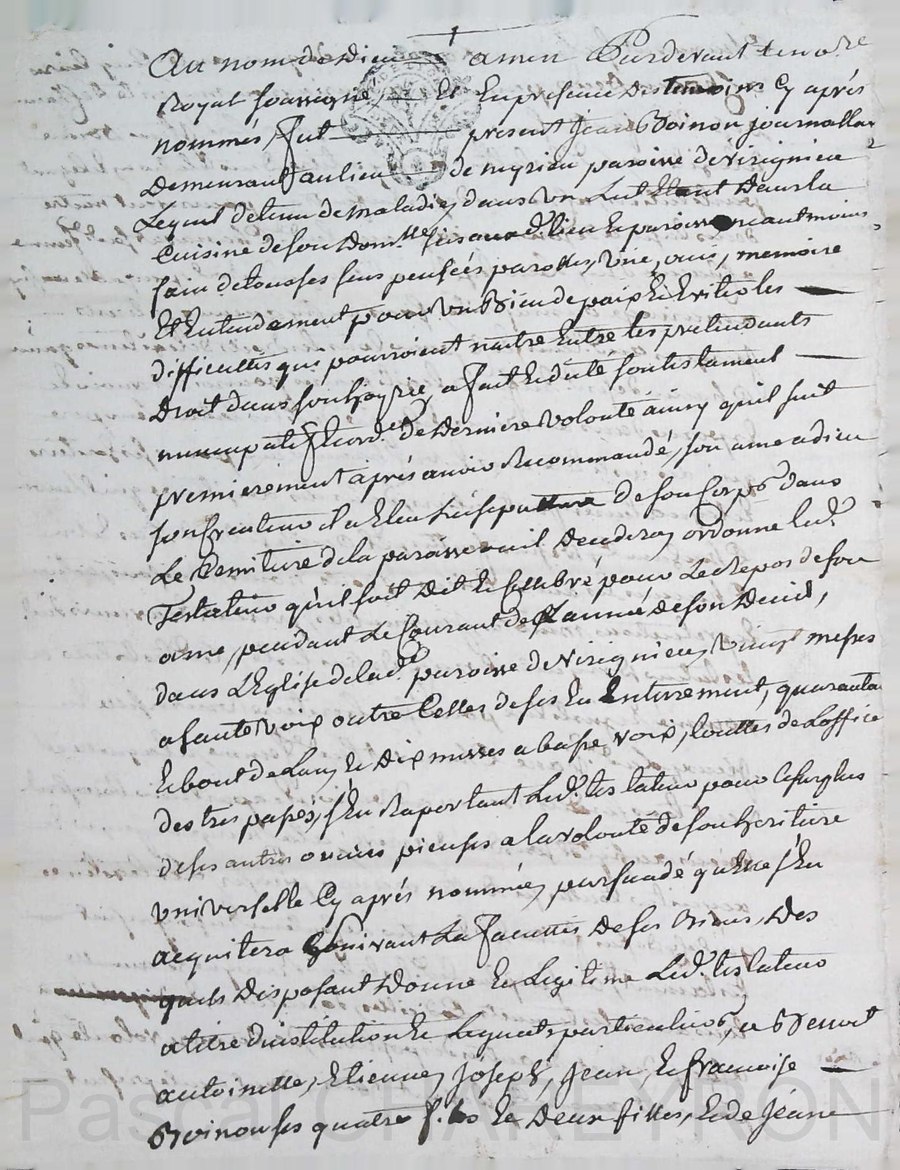 Au nom de Dieu amen Pardevant le no.re
Royal soussigné, Et En presence des temoins Cy après
nommés, fut present Jean Boinon journallier
Demeurant au lieu de myrieu paroisse de Virignieu
Lequel detenu de maladie, dans un Lit Etant Dans la
Cuisine de son Dom.lle sis aud. lieu et paroisse neautmoins
sain de tous ses sens pensées parolles, vue, ouis, memoire
Et Entendement pour un Bien de paix Et Eviter les
difficultes qui pourroient naitre Entre les pretendants
Droit dans son hoyrie, a fait et dicté son testament
nuncupatif et ord.e de Derniere volonté ainsy quil suit
premierement après avoir Recommandé, son ame a dieu
son Createur il a Eleu La sepulture de son Corps dans
Le Cemitiere de la paroisse ou il Decedera, ordonne led.
Testateur qu'il soit Dit et Cellebré pour Le Repos de son
ame, pendant Le Courant de l'année de son Decès,
dans L'Eglise de lad.e paroisse de Virignieu, Vingt messes
a haute voix outre Celles de ses Enterrement, quarantal
Et bout de Lan, Et Dix messes a basse voix, touttes de L'office
des trepassés, s'En Raportant Led. testateur pour le surplus
de ses autres oeuvres pieuses a la volonté de son heritiere
universelle Cy après nommée, persuadé qu'Elle s'En
acquitera suivant La facultés de ses Biens, Des
quels Disposant Donne Et Legitime Led. testateur
a titre d'institution Et Legats particuliers, a Benoit
antoinette, Etienne, Joseph, Jean, Et francoise
Boinon ses quatre fils Et Deux filles, Et de Jeane
Pascal CHAREYRON